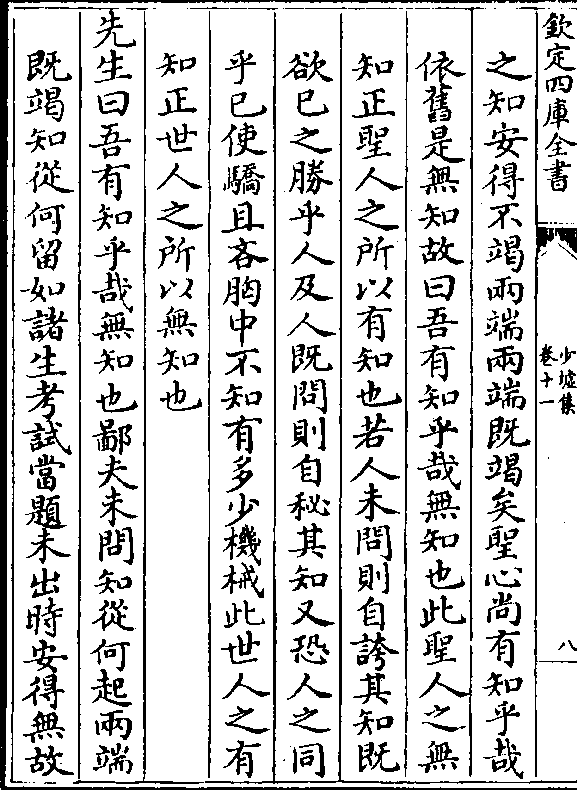 欽定四庫全書
少墟集
卷十一
八
之知安得不竭兩端兩端既竭矣聖心尚有知乎哉
依舊是無知故曰吾有知乎哉無知也此聖人之無
知正聖人之所以有知也若人未問則自誇其知既
欲已之勝乎人及人既問則自秘其知又恐人之同
乎已使驕且吝胸中不知有多少機械此世人之有
知正世人之所以無知也
先生曰吾有知乎哉無知也鄙夫未問知從何起兩端
既竭知從何留如諸生考試當題未出時安得無故